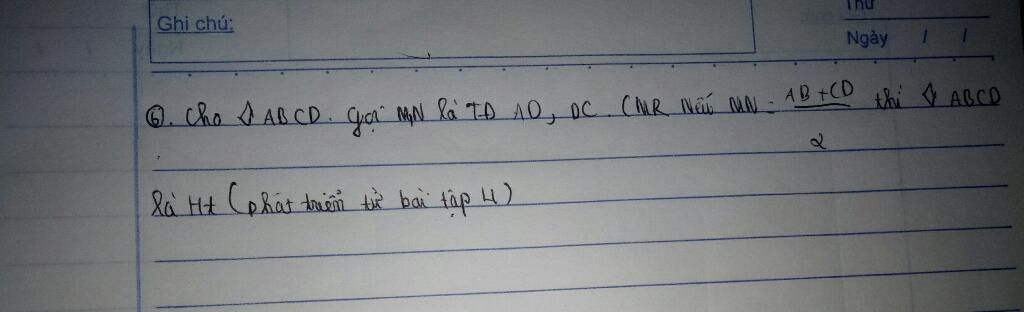 Ghi chú:
Thứ
Ngày / /
6. Cho ◊ ABCD. Gọi M,N là TĐ AD, DC. CMR Nếu MN = AB + CD / 2 thì ◊ ABCD
là Ht (phát triển từ bài tập 4)